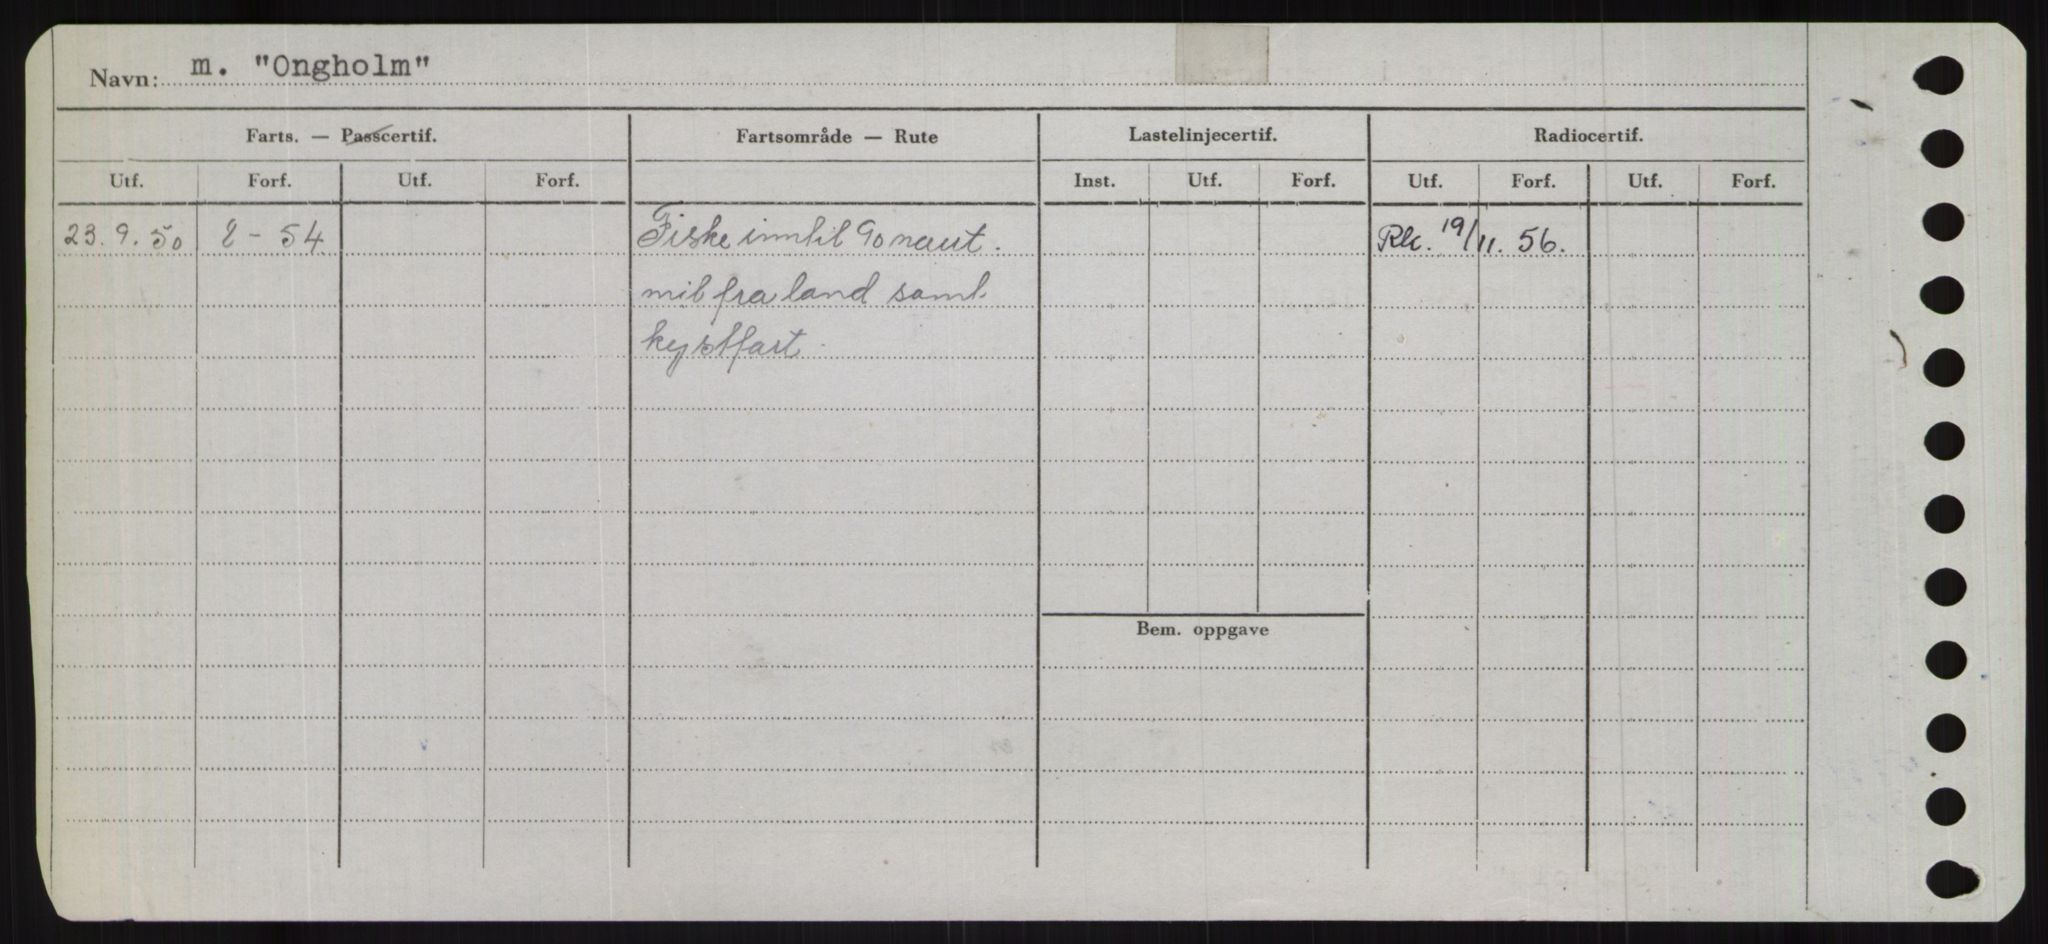 Navn: m. "Ongholm"
Farts. — Passcertif. Fartsområde — Rute Lastelinjecertif. Radiocertif.
Utf. Forf. Utf. Forf. Inst. Utf. Forf. Utf. Forf. Utf. Forf.
23.9.50 2 - 54 Fiske inntil 90 naut. Rk. 19/11. 56.
mil fra land saml
kystfart.
Bem. oppgave